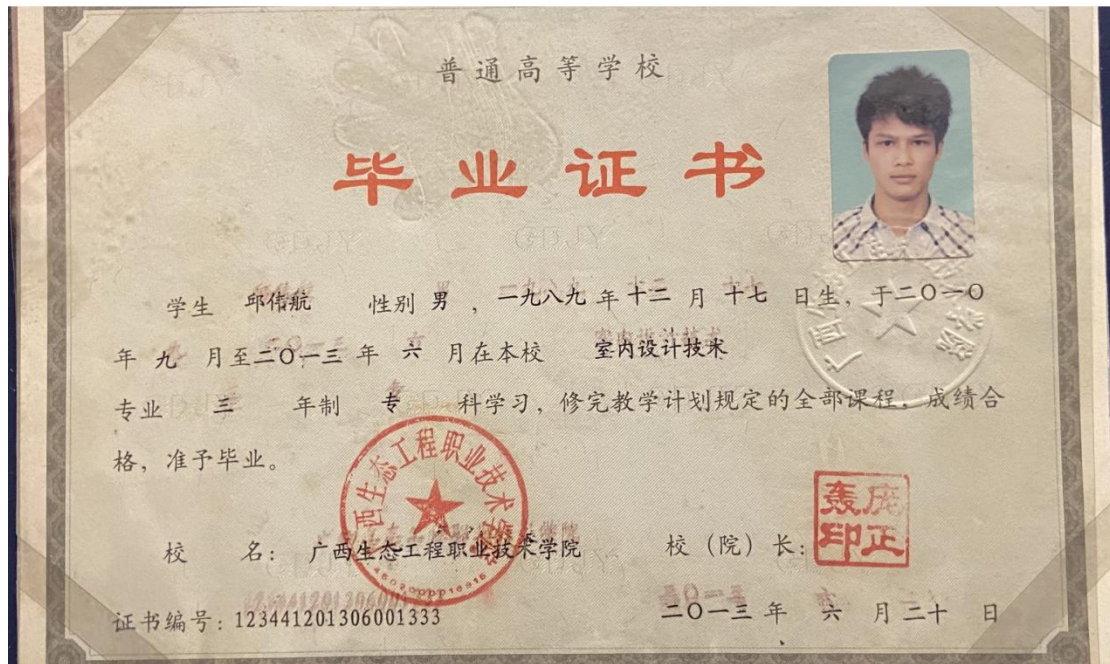 普通高等学校
毕业证书
学生 邱伟航 性别 男 ，一九八九 年 十二 月 十七 日生，于二〇一〇
年 九 月至二〇一三 年 六 月在本校 室内设计技术
专业 三 年制 专 科学习，修完教学计划规定的全部课程，成绩合
格，准予毕业。
广西生态工程职业技术学院
4502000016915
庞正轰印
校 名：广西生态工程职业技术学院 校（院）长：
证书编号：123441201306001333 二〇一三 年 六 月 二十 日